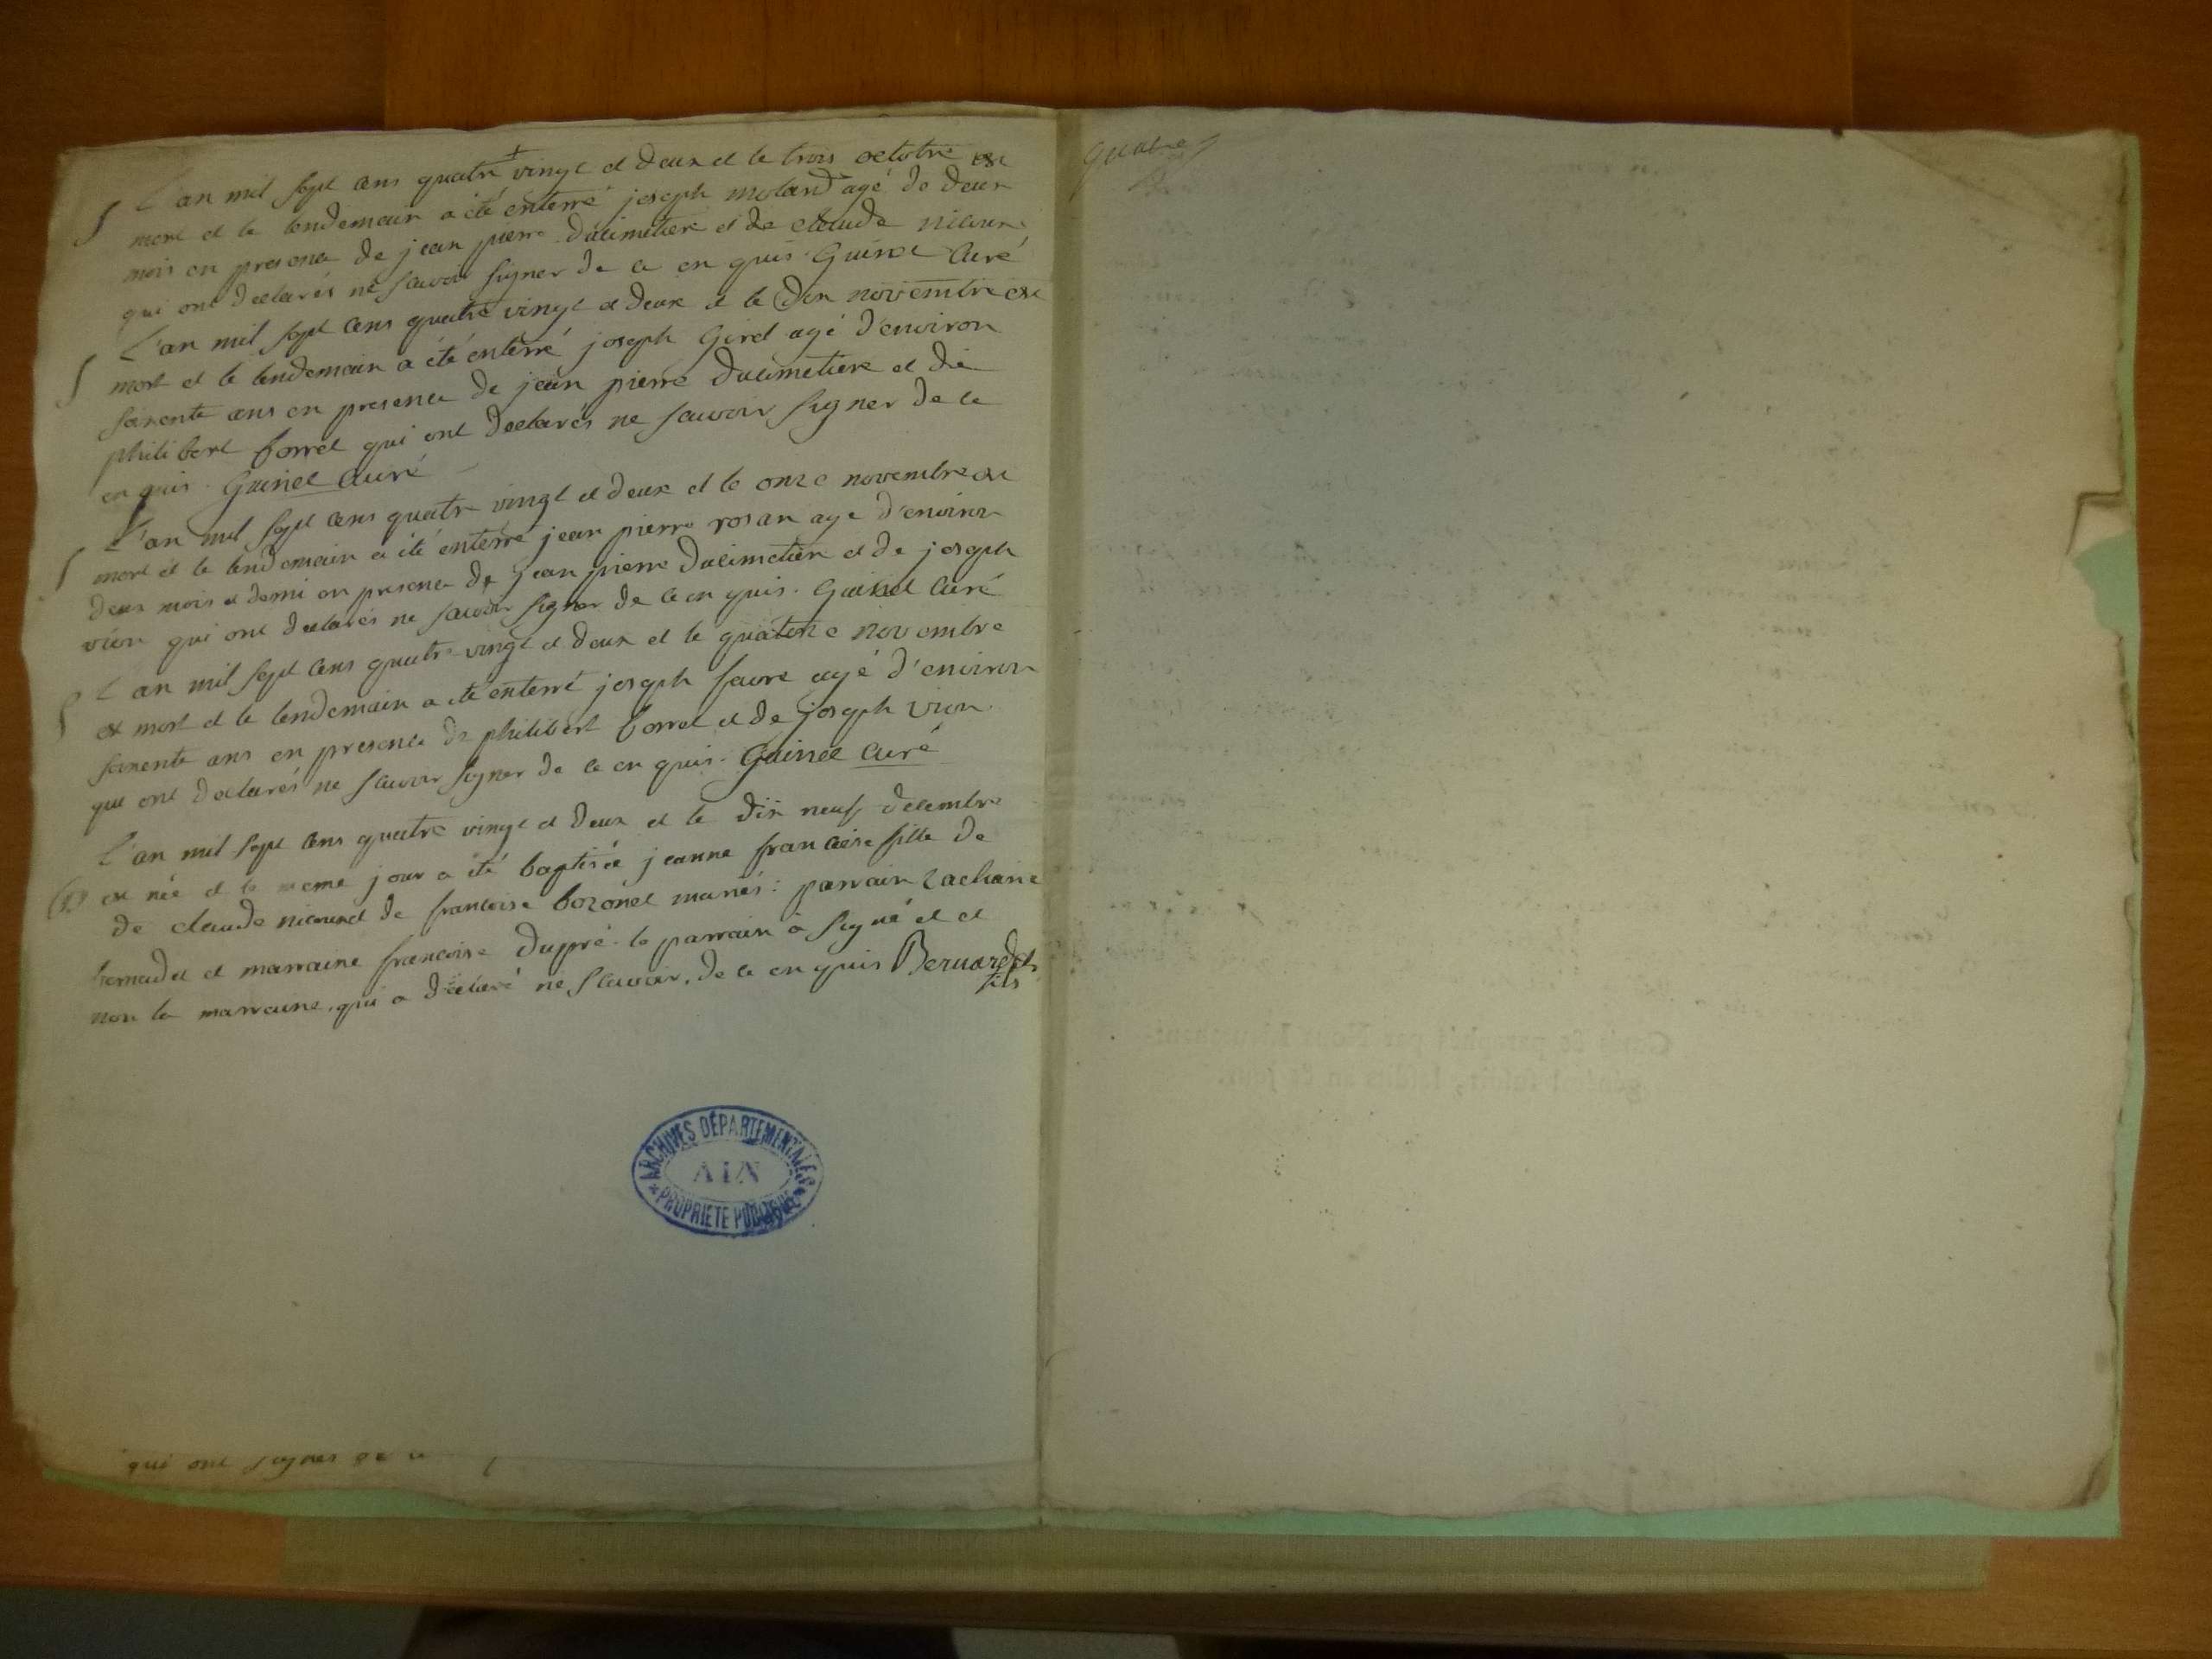 L'an mil sept cens quatre vingt et deux et le trois octobre est
mort et le lendemain a été enterré joseph moland agé de deux
mois en presence de jean pierre Ducimetiere et de claude nicoud
qui ont declarés ne savoir signer de ce en quis. Guinet Curé
L'an mil sept cens quatre vingt et deux et le dix novembre est
mort et le lendemain a été enterré joseph Girel agé d'environ
soixente ans en presence de jean pierre Ducimetiere et de
philibert borrel qui ont declarés ne savoir signer de ce
en quis. Guinet Curé
L'an mil sept cens quatre vingt et deux et le onze novembre est
mort et le lendemain a été enterré jean pierre rosan age d'environ
deux mois et demi en presence de jean pierre Ducimetiere et de joseph
vion qui ont declarés ne savoir signer de ce en quis. Guinet Curé
L'an mil sept cens quatre vingt et deux et le quatorze novembre
est mort et le lendemain a été enterré joseph favre agé d'environ
soixente ans en presence de philibert borrel et de joseph vion
qui ont declarés ne scavoir signer de ce en quis. Guinet Curé
L'an mil sept cens quatre vingt et deux et le dix neuf decembre
est née et le meme jour a été baptisée jeanne francoise fille de
de claude nicoud et de francoise bozonet mariés: parrain zacharie
bernadet et marraine francoise dupré. le parrain a signé et et
non la marraine, qui a déclaré ne scavoir. de ce en quis Bernardet
fils
ARCHIVES DÉPARTEMENTALES
AIN
* PROPRIETE PUBLIQUE *
qui ont signés de ce
quatre